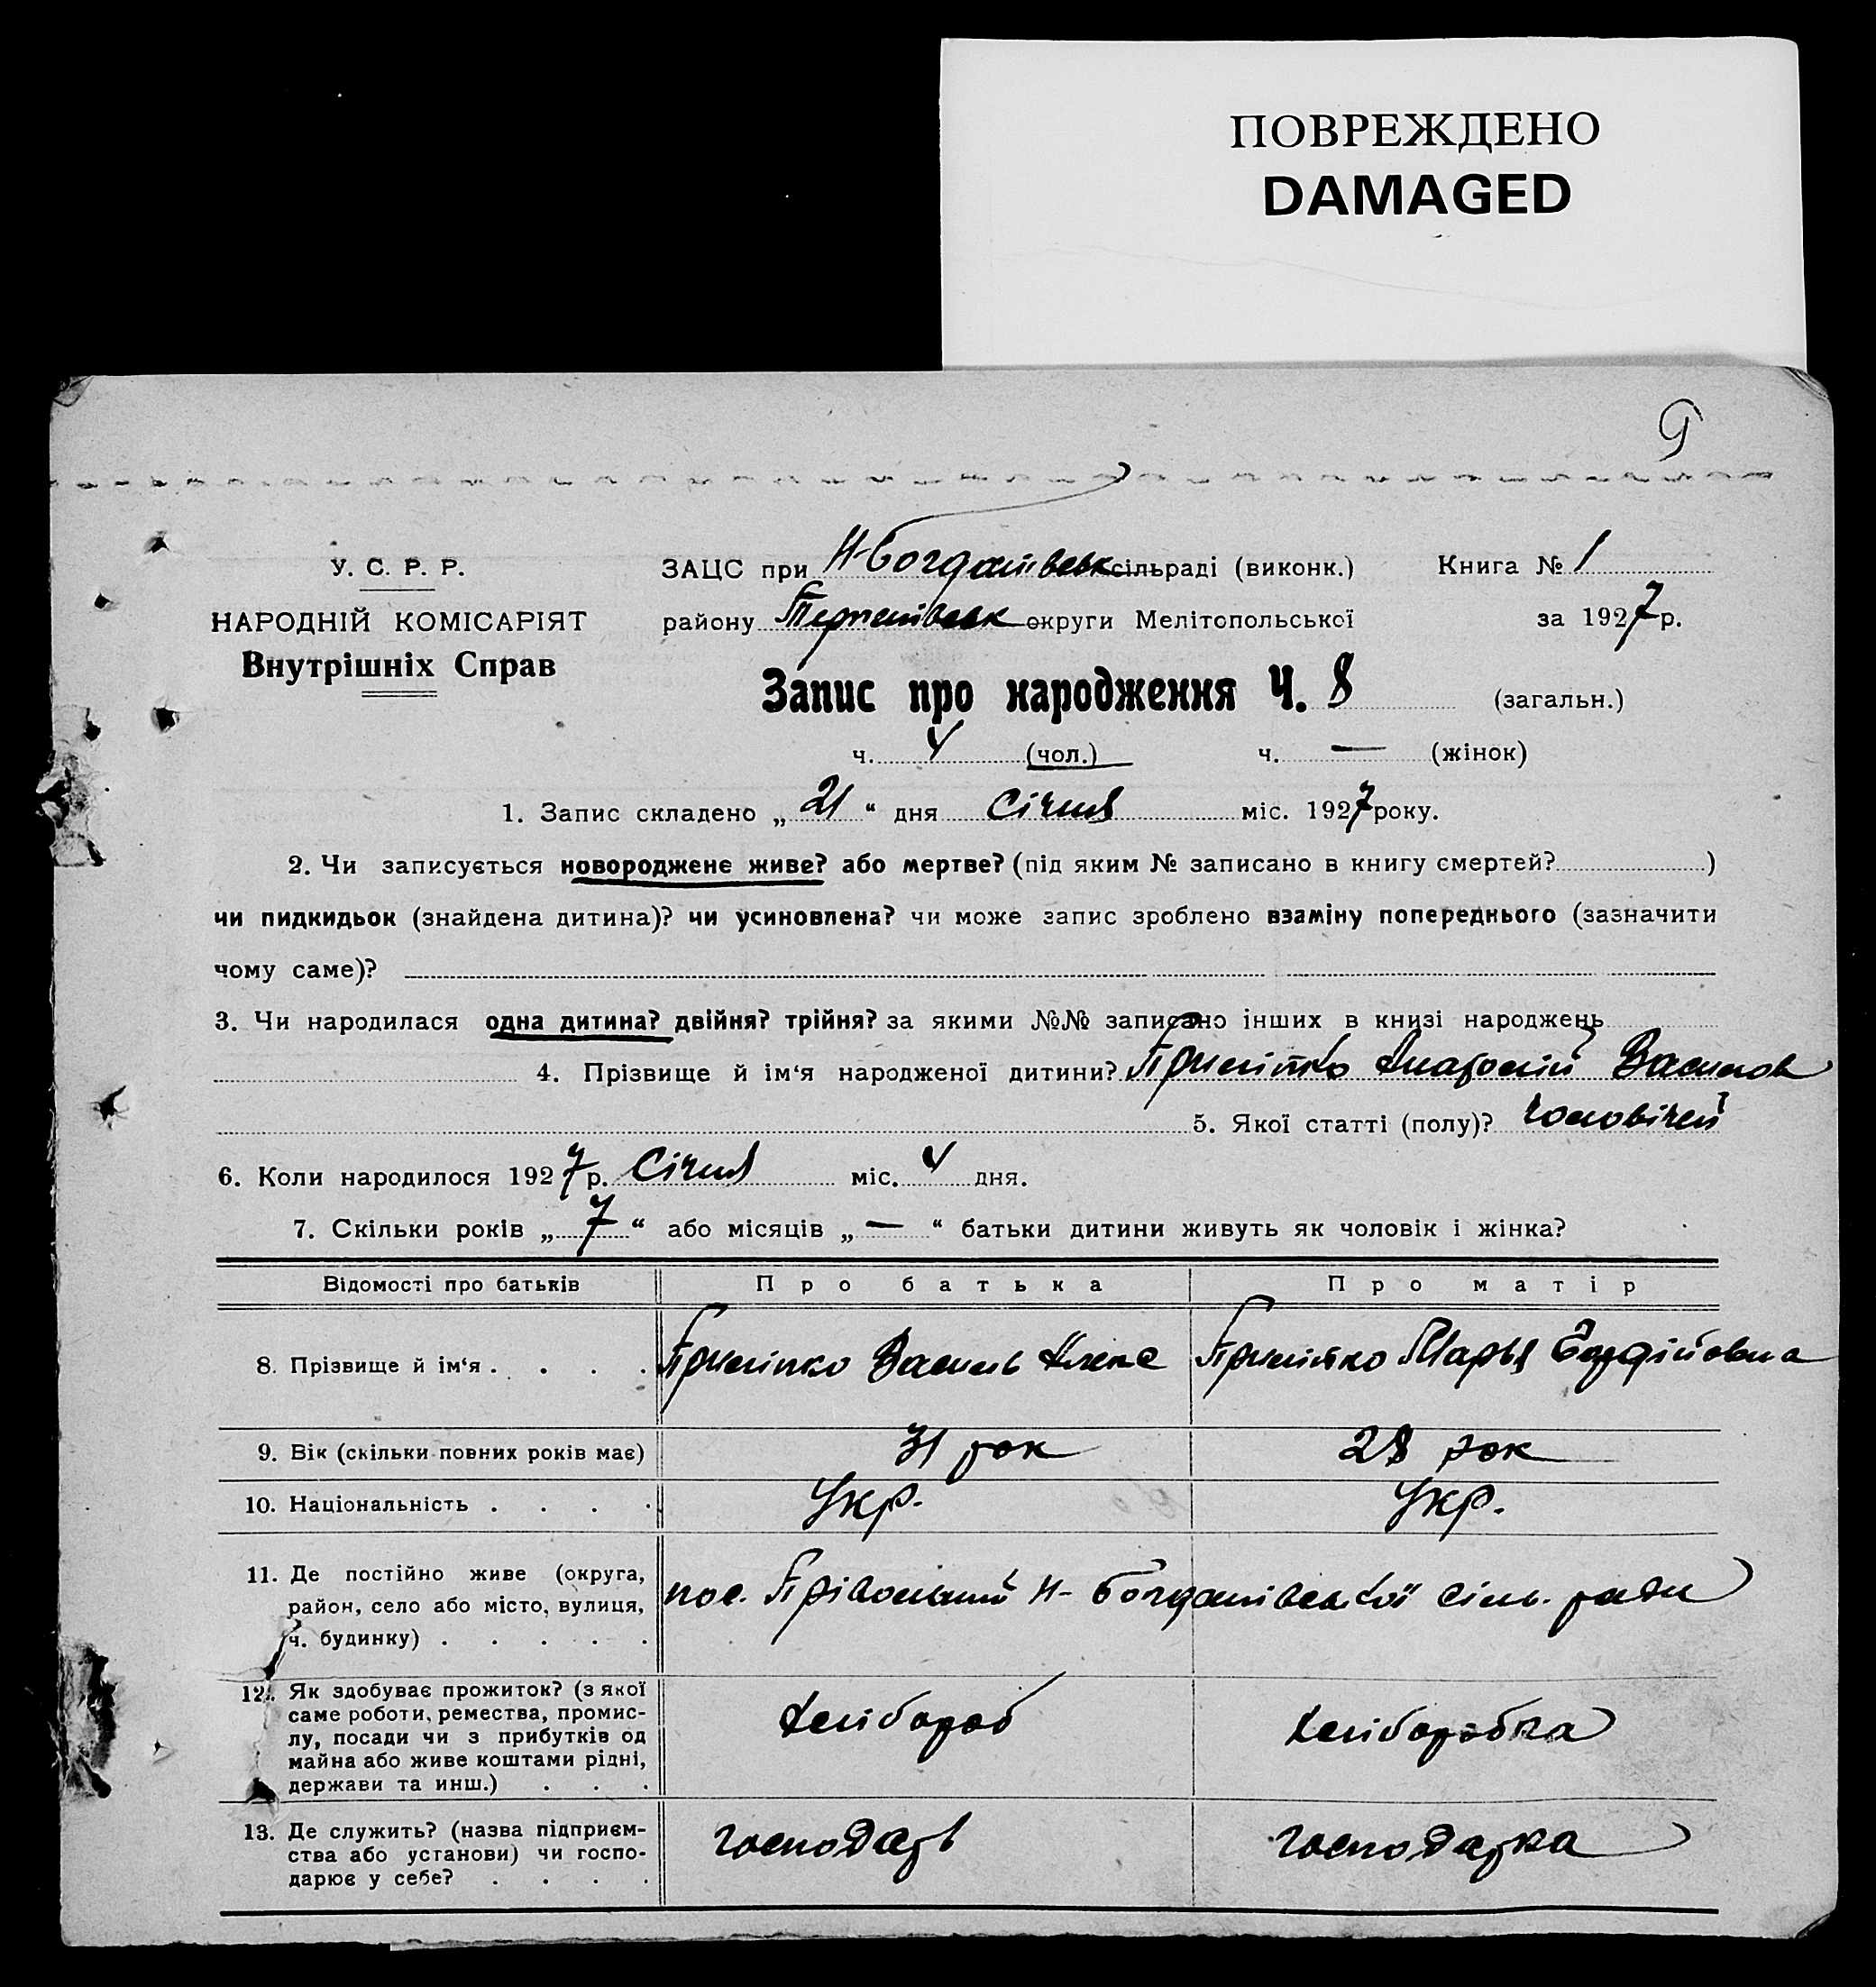 ПОВРЕЖДЕНО
DAMAGED
9
У. С. Р. Р.
НАРОДНІЙ КОМІСАРІЯТ
Внутрішніх Справ
ЗАЦС при Н-Богданівськ сільраді (виконк.) Книга № 1
району Терпенівськ округи Мелітопольської за 1927 р.
Запис про народження Ч. 8 (загальн.)
ч. 4 (чол.) ч. — (жінок)
1. Запис складено „ 21 “ дня Січня міс. 1927 року.
2. Чи записується новороджене живе? або мертве? (під яким № записано в книгу смертей? )
чи пидкидьок (знайдена дитина)? чи усиновлена? чи може запис зроблено взаміну попереднього (зазначити
чому саме)?
3. Чи народилася одна дитина? двійня? трійня? за якими №№ записано інших в книзі народжень
4. Прізвище й ім‘я народженої дитини? Василов
5. Якої статті (полу)? чоловічей
6. Коли народилося 1927 р. Січня міс. 4 дня.
7. Скільки років „ 7 “ або місяців „ — “ батьки дитини живуть як чоловік і жінка?
Відомості про батьків Про батька Про матір
8. Прізвище й ім‘я . . . . Василь Марья
9. Вік (скільки повних років має) 31 рок 28 рок
10. Національність . . . . Укр. Укр.
11. Де постійно живе (округа,
район, село або місто, вулиця,
ч. будинку) . . . . .
пос. Прівольний Н-Богданівської сіль. ради
12. Як здобуває прожиток? (з якої
саме роботи, ремества, промис-
лу, посади чи з прибутків од
майна або живе коштами рідні,
держави та инш.) . . .
хлібороб хліборобка
13. Де служить? (назва підприєм-
ства або установи) чи госпо-
дарює у себе? . . . .
господарь господарка